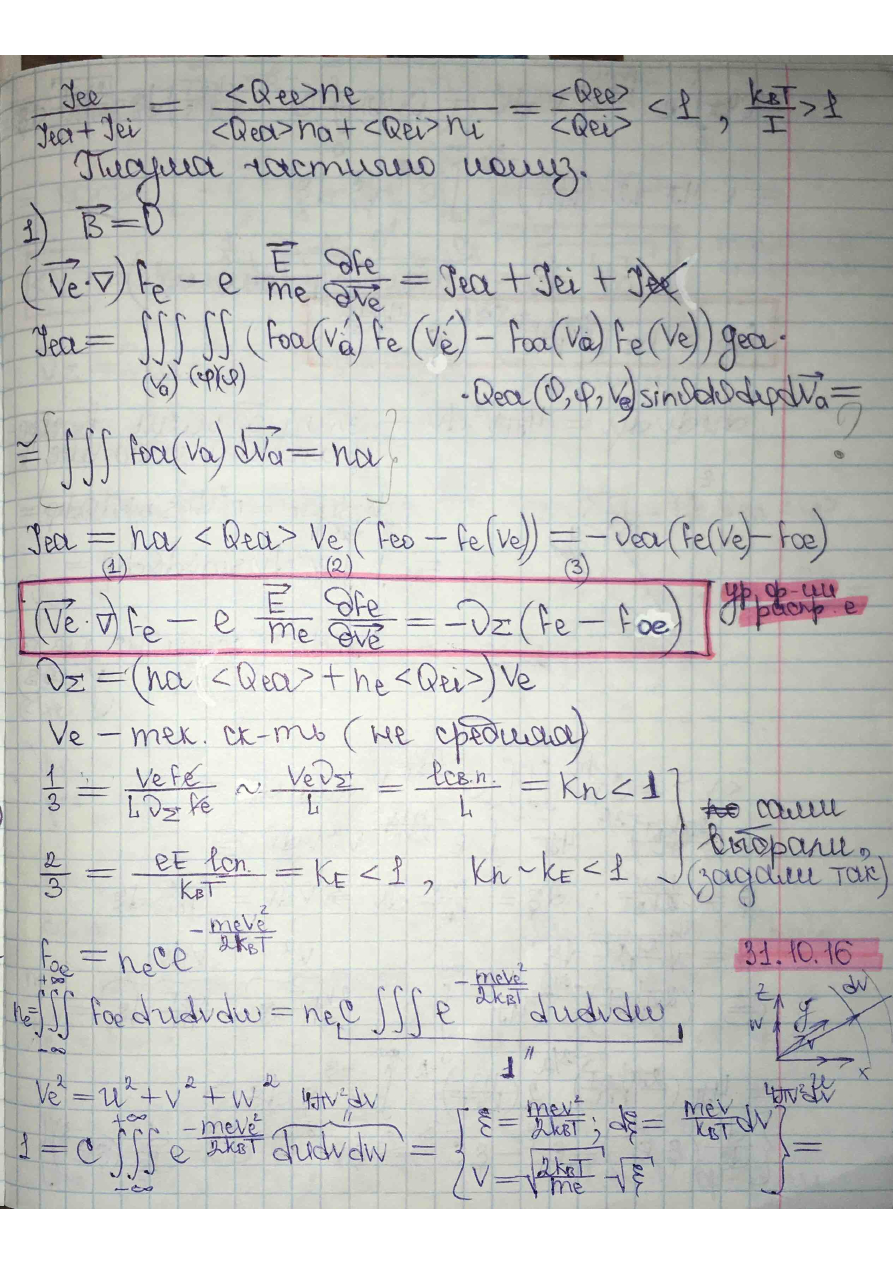 Jee / (Jea + Jei) = <Qee>ne / (<Qea>na + <Qei>ni) = <Qee> / <Qei> < 1 , kвT / I > 1
Плазма частично иониз.
1) B⃗ = 0
(V⃗e·∇) fe − e E⃗/me ∂fe/∂V⃗e = Jea + Jei + Jee
Jea = ∭ ∬ (foa(Va′) fe(Ve′) − foa(Va) fe(Ve)) gea·
(Va) (φ)(ϑ)
·Qea(ϑ, φ, Ve) sinϑdϑdφdV⃗a =
≅ { ∭ foa(Va) dV⃗a = na } ?
Jea = na <Qea> Ve (feo − fe(Ve)) = −νea(fe(Ve) − foe)
(1) (2) (3)
(V⃗e·∇) fe − e E⃗/me ∂fe/∂V⃗e = −νΣ (fe − foe)
ур. ф-ии распр. е
νΣ = (na <Qea> + ne <Qei>) Ve
Ve — тек. ск-ть (не средняя)
1/3 = Ve fe / (L νΣ fe) ~ Ve νΣ / L = lсв.п. / L = Kn < 1
2/3 = eE lсп. / kвT = KE < 1 , Kn ~ KE < 1
сами выбрали, (задали так)
foe = ne C e^(−meVe²/2kвT)
31.10.16
ne = ∭ foe dudvdw = ne C ∭ e^(−meVe²/2kвT) dudvdw
−∞ +∞
1
z w g v dv x u
Ve² = u² + v² + w² 4πv²dv 4πv²dv
1 = C ∭ e^(−meVe²/2kвT) dudvdw = { ξ = mev²/2kвT ; dξ = mev/kвT dv
−∞ +∞
V = √(2kвT/me) √ξ } =